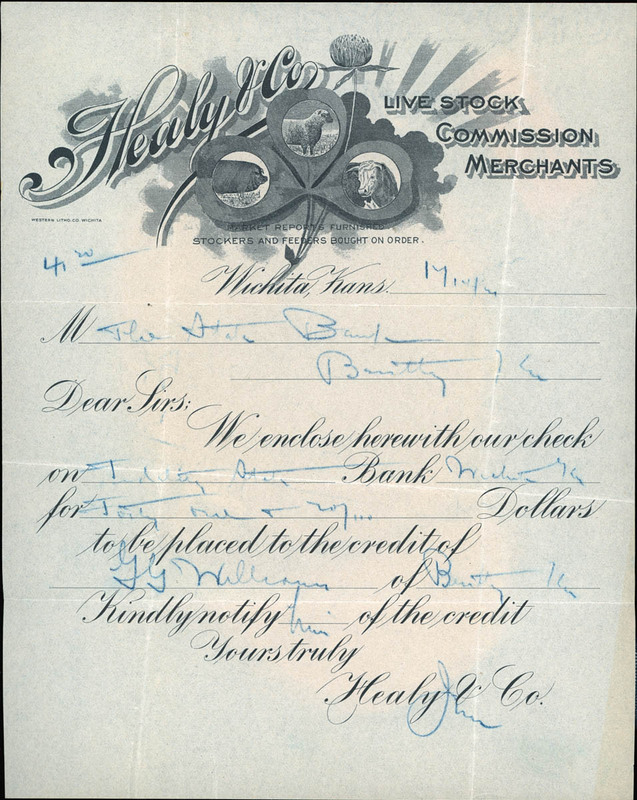 Healy & Co.
LIVE STOCK
COMMISSION
MERCHANTS
WESTERN LITHO. CO. WICHITA
MARKET REPORTS FURNISHED
STOCKERS AND FEEDERS BOUGHT ON ORDER.
41 20
Wichita, Kans.
M The State Bank
Dear Sirs:
We enclose herewith our check
on Fidelity State Bank Wichita Ks
for Forty one & 20/100 Dollars
to be placed to the credit of
G.G. Williams of
Kindly notify him of the credit
Yours truly
Healy & Co.